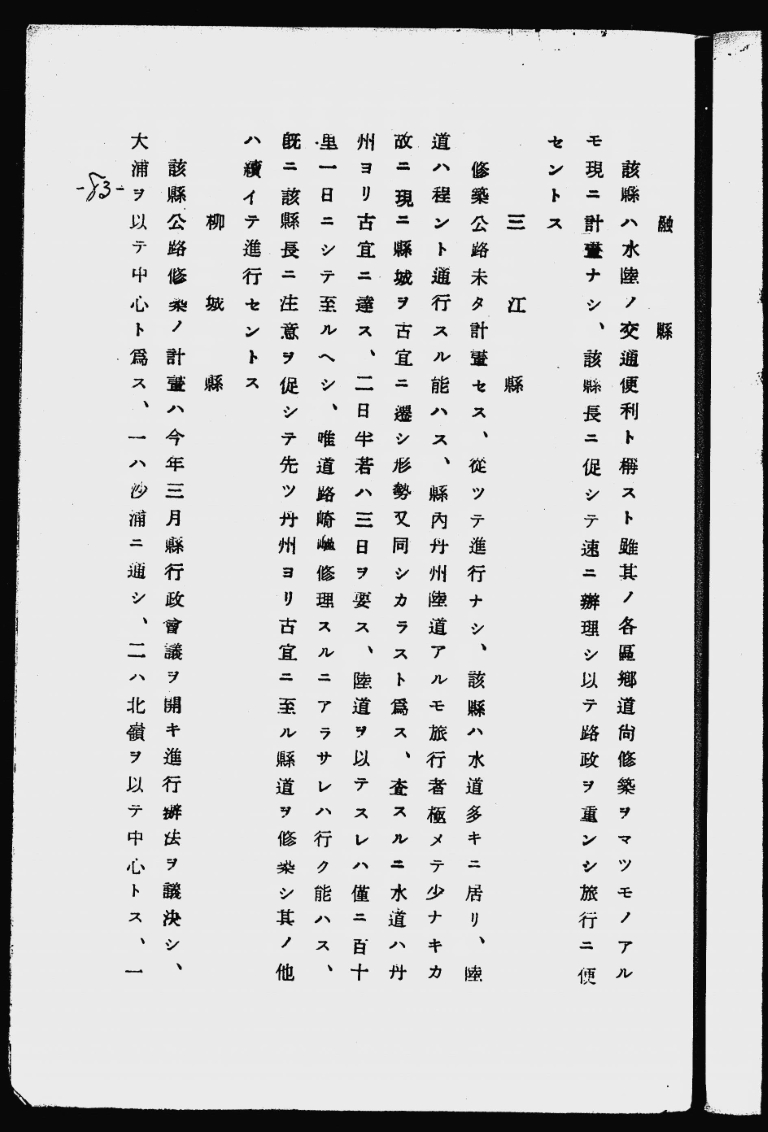 融縣
該縣ハ水陸ノ交通便利ト稱スト雖其ノ各區鄕道尙修築ヲマツモノアル
モ現ニ計畫ナシ、該縣長ニ促シテ速ニ辦理シ以テ路政ヲ重ンシ旅行ニ便
セントス
三江縣
修築公路未タ計畫セス、從ツテ進行ナシ、該縣ハ水道多キニ居リ、陸
道ハ程ント通行スル能ハス、縣內丹州陸道アルモ旅行者極メテ少ナキカ
故ニ現ニ縣城ヲ古宜ニ遷シ形勢又同シカラスト爲ス、査スルニ水道ハ丹
州ヨリ古宜ニ達ス、二日半若ハ三日ヲ要ス、陸道ヲ以テスレハ僅ニ百十
里一日ニシテ至ルヘシ、唯道路崎嶇修理スルニアラサレハ行ク能ハス、
既ニ該縣長ニ注意ヲ促シテ先ツ丹州ヨリ古宜ニ至ル縣道ヲ修築シ其ノ他
ハ續イテ進行セントス
柳城縣
該縣公路修築ノ計畫ハ今年三月縣行政會議ヲ開キ進行辦法ヲ議決シ、
大浦ヲ以テ中心ト爲ス、一ハ沙浦ニ通シ、二ハ北嶺ヲ以テ中心トス、一
-83-